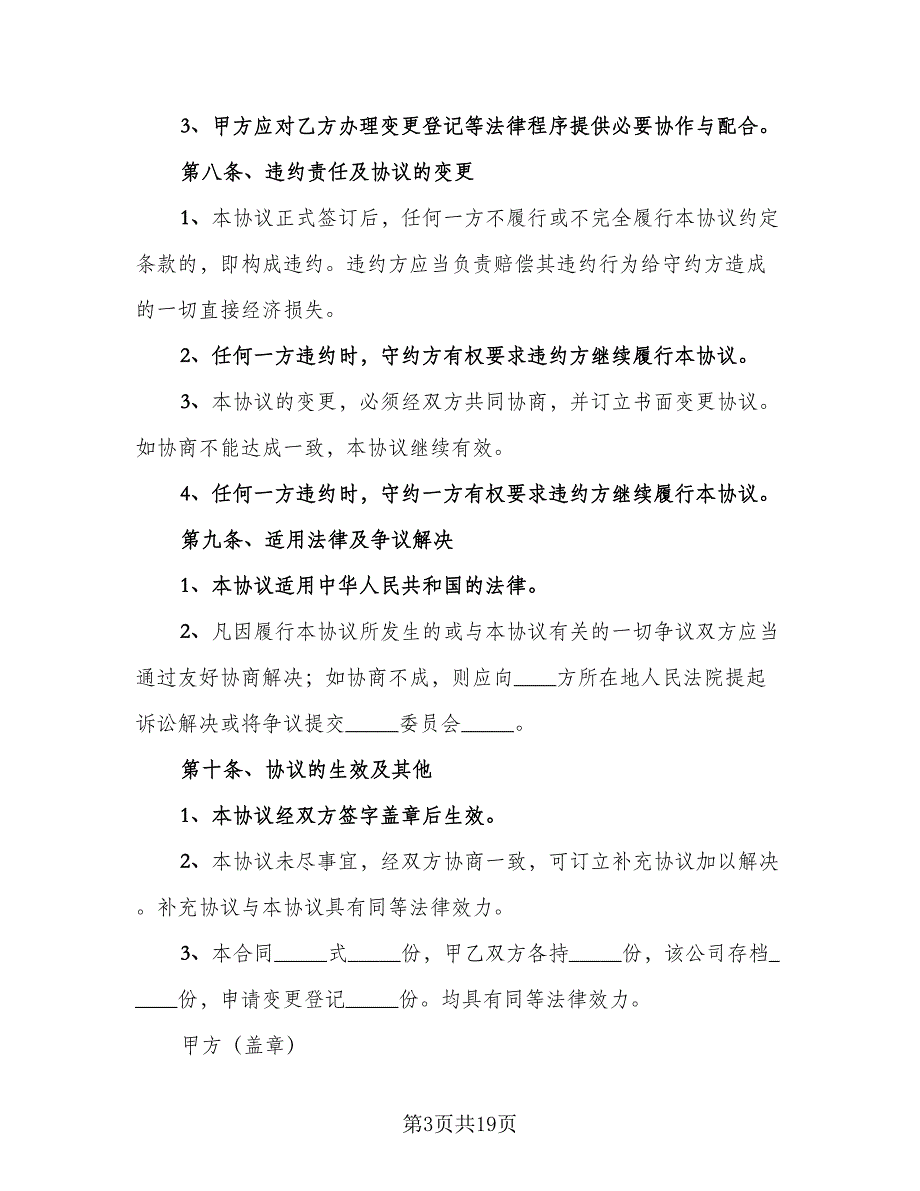 3、甲方应对乙方办理变更登记等法律程序提供必要协作与配合。
第八条、违约责任及协议的变更
1、本协议正式签订后，任何一方不履行或不完全履行本协议约定
条款的，即构成违约。违约方应当负责赔偿其违约行为给守约方造成
的一切直接经济损失。
2、任何一方违约时，守约方有权要求违约方继续履行本协议。
3、本协议的变更，必须经双方共同协商，并订立书面变更协议。
如协商不能达成一致，本协议继续有效。
4、任何一方违约时，守约一方有权要求违约方继续履行本协议。
第九条、适用法律及争议解决
1、本协议适用中华人民共和国的法律。
2、凡因履行本协议所发生的或与本协议有关的一切争议双方应当
通过友好协商解决；如协商不成，则应向____方所在地人民法院提起
诉讼解决或将争议提交_____委员会_____。
第十条、协议的生效及其他
1、本协议经双方签字盖章后生效。
2、本协议未尽事宜，经双方协商一致，可订立补充协议加以解决
。补充协议与本协议具有同等法律效力。
3、本合同_____式_____份，甲乙双方各持_____份，该公司存档_
____份，申请变更登记_____份。均具有同等法律效力。
甲方（盖章）
第3页共19页